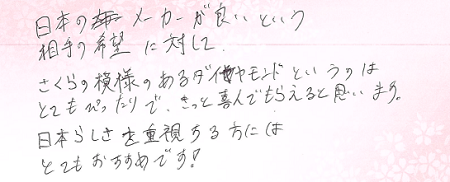 日本のメーカーが良いという
相手の希望に対して、
さくらの模様のあるダイヤモンドというのは
とてもぴったりで、きっと喜んでもらえると思います。
日本らしさを重視する方には
とてもおすすめです!